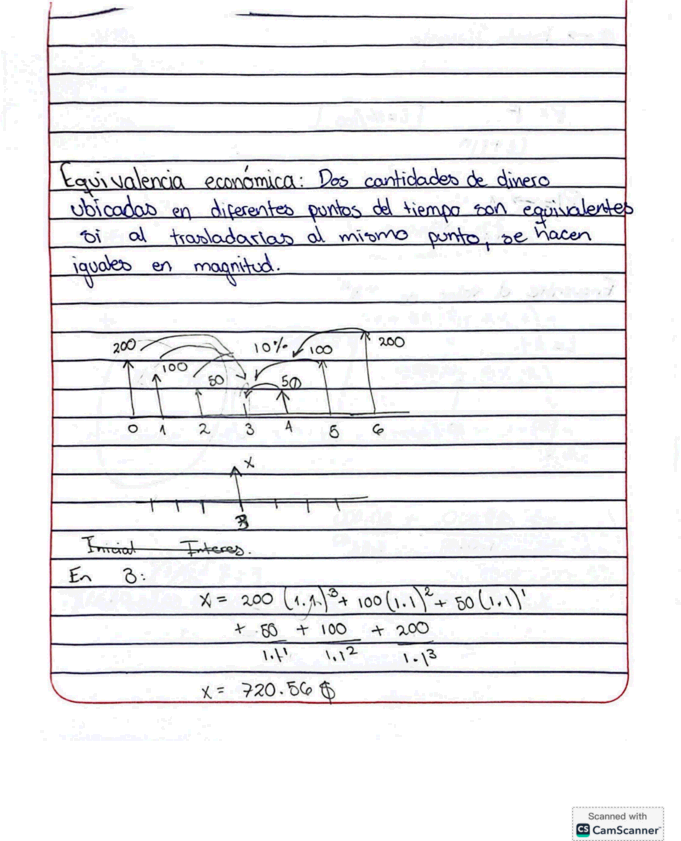 Equivalencia económica: Dos cantidades de dinero
ubicadas en diferentes puntos del tiempo son equivalentes
si al trasladarlas al mismo punto, se hacen
iguales en magnitud.
200 100 50 10% 50 100 200
0 1 2 3 4 5 6
x
3
Inicial Interes.
En 3:
x = 200 (1.1)³ + 100(1.1)² + 50(1.1)¹
+ 50/1.1¹ + 100/1.1² + 200/1.1³
x = 720.56 $
Scanned with
CS CamScanner